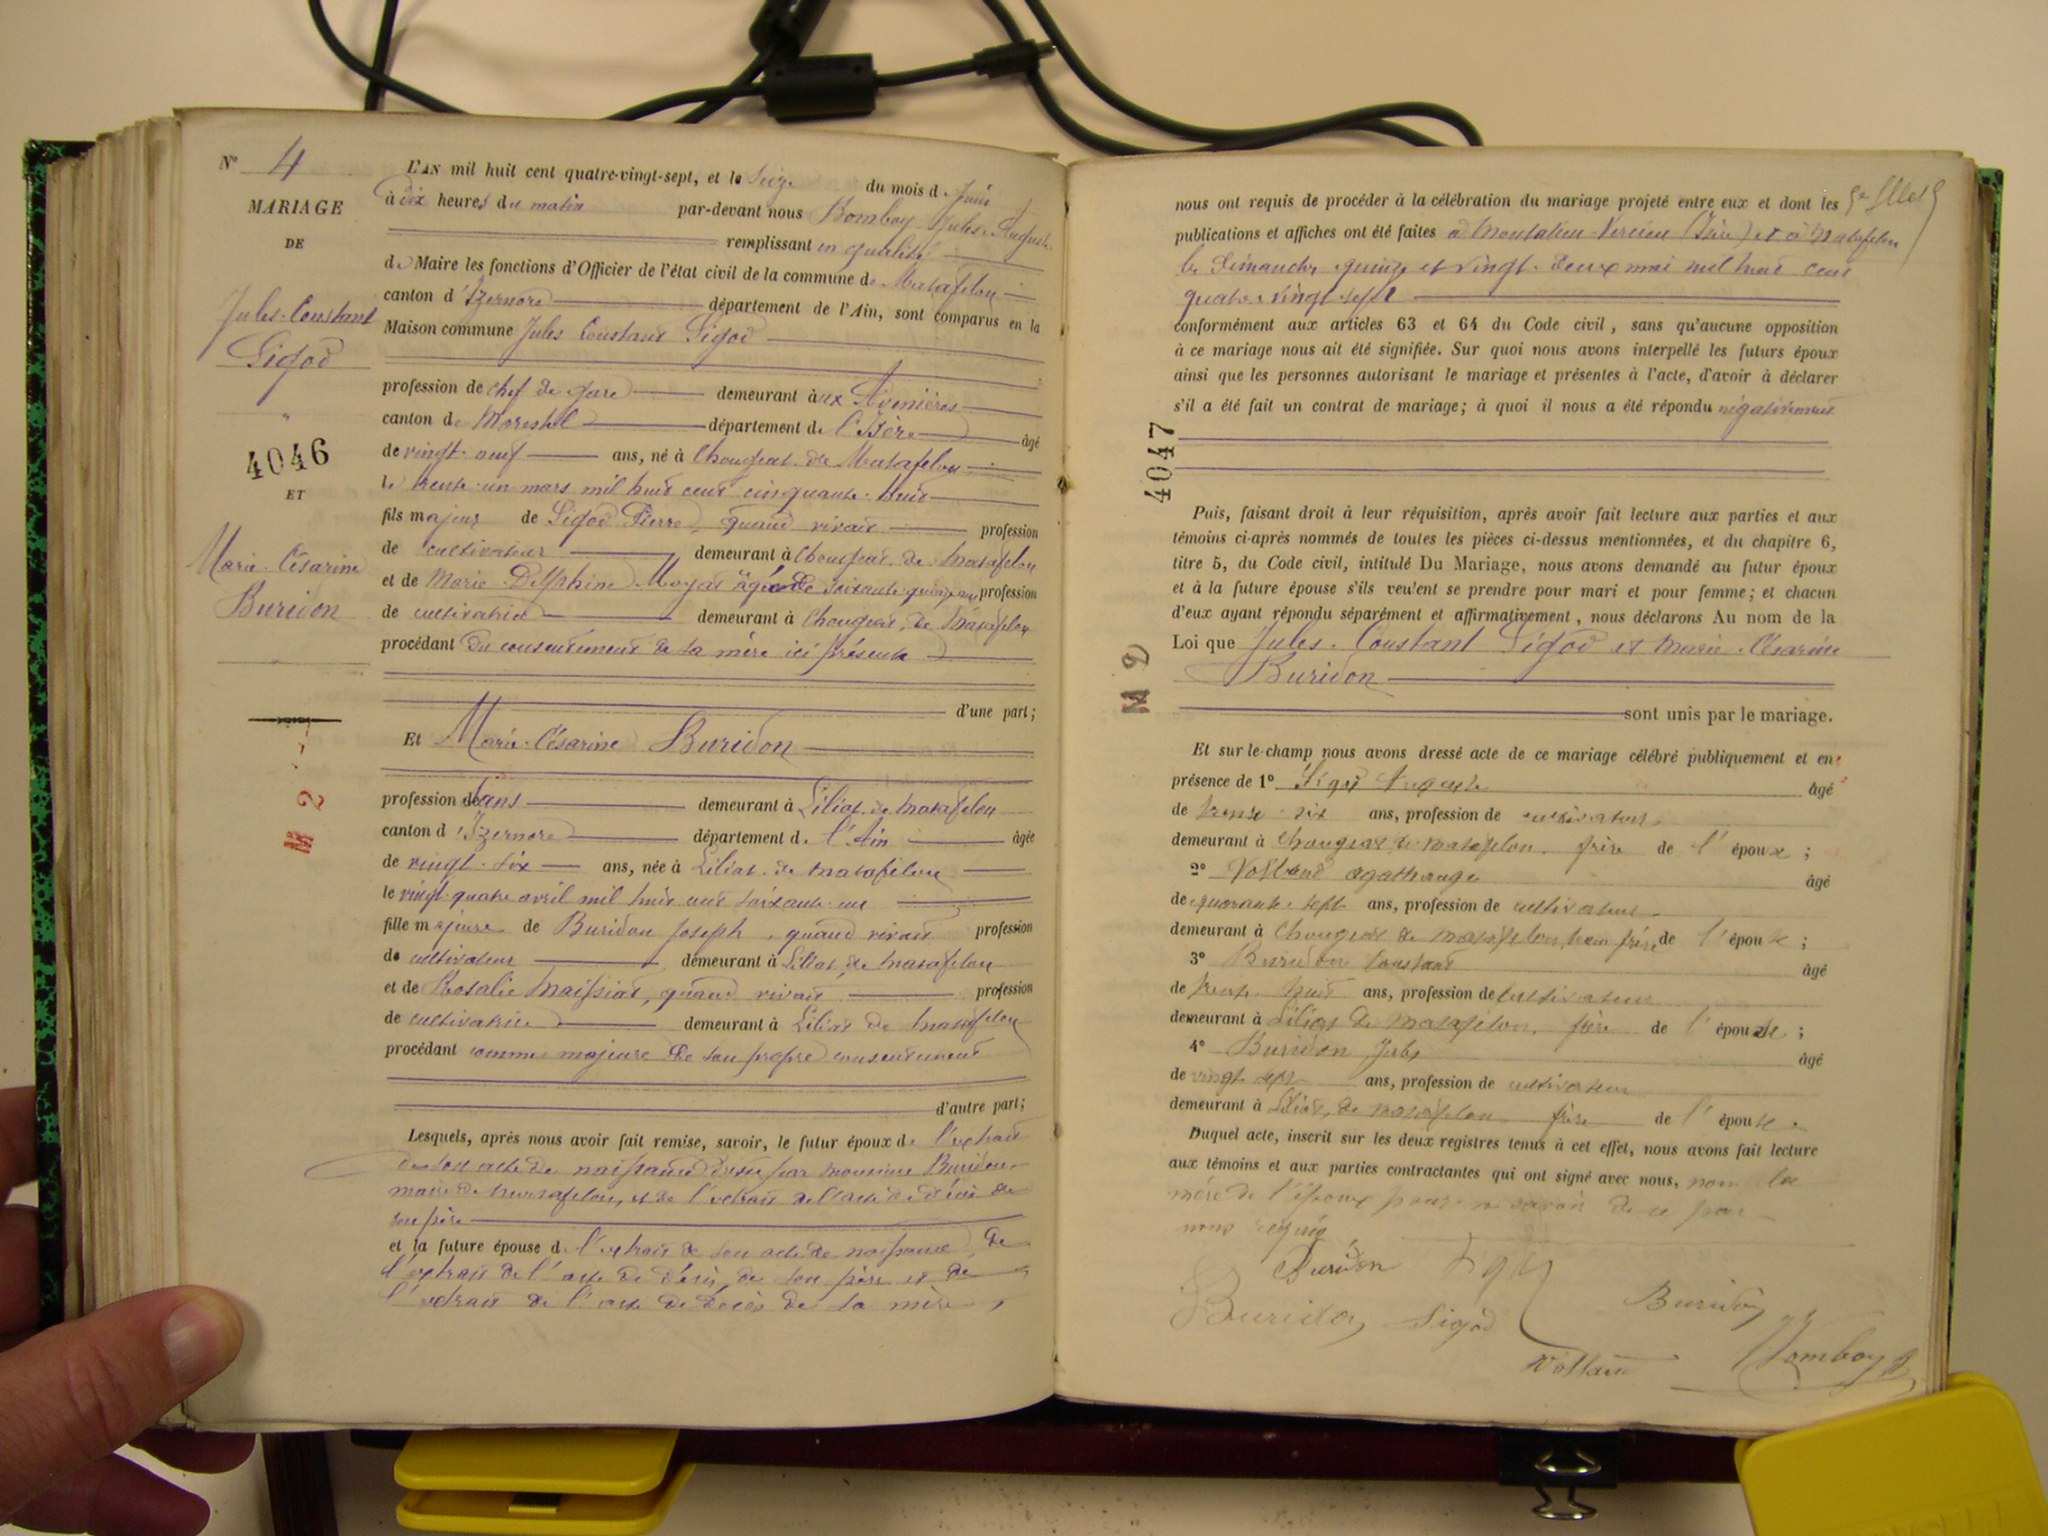 N° 4
MARIAGE
DE
Jules Constant
Sigod
4046
ET
Marie Césarine
Buridon
M 2
L'AN mil huit cent quatre-vingt-sept, et le seize du mois de Juin
à dix heures du matin par-devant nous Bomboy Jules Auguste
remplissant en qualité
de Maire les fonctions d'Officier de l'état civil de la commune de Matafelon
canton d'Izernore département de l'Ain, sont comparus en la
Maison commune Jules Constant Sigod
profession de chef de gare demeurant aux Avenières
canton de Morestel département de l'Isère âgé
de vingt-neuf ans, né à Chougeat de Matafelon
le trente-un mars mil huit cent cinquante-huit
fils majeur de Sigod Pierre, quand vivait profession
de cultivateur demeurant à Chougeat de Matafelon
et de Marie Delphine Moyat âgée de soixante-quinze ans profession
de cultivatrice demeurant à Chougeat, de Matafelon
procédant du consentement de sa mère ici présente
d'une part;
Et Marie-Césarine Buridon
profession de sans demeurant à Siliat de Matafelon
canton d'Izernore département de l'Ain âgée
de vingt-six ans, née à Siliat de Matafelon
le vingt-quatre avril mil huit cent soixante-un
fille majeure de Buridon Joseph, quand vivait profession
de cultivateur demeurant à Siliat, de Matafelon
et de Rosalie Maissiat, quand vivait profession
de cultivatrice demeurant à Siliat de Matafelon
procédant comme majeure de son propre consentement
d'autre part;
Lesquels, après nous avoir fait remise, savoir, le futur époux de l'extrait
de son acte de naissance dressé par monsieur Buridon
maire de Matafelon, et de l'extrait de l'acte de décès de
son père
et la future épouse de l'extrait de son acte de naissance, de
l'extrait de l'acte de décès de son père et de
l'extrait de l'acte de décès de sa mère,
nous ont requis de procéder à la célébration du mariage projeté entre eux et dont les
publications et affiches ont été faites à Montalieu-Vercieu (Isère) et à Matafelon
les dimanches quinze et vingt-deux mai mil huit cent
quatre-vingt-sept
conformément aux articles 63 et 64 du Code civil, sans qu'aucune opposition
à ce mariage nous ait été signifiée. Sur quoi nous avons interpellé les futurs époux
ainsi que les personnes autorisant le mariage et présentes à l'acte, d'avoir à déclarer
s'il a été fait un contrat de mariage; à quoi il nous a été répondu négativement
4047
Puis, faisant droit à leur réquisition, après avoir fait lecture aux parties et aux
témoins ci-après nommés de toutes les pièces ci-dessus mentionnées, et du chapitre 6,
titre 5, du Code civil, intitulé Du Mariage, nous avons demandé au futur époux
et à la future épouse s'ils veulent se prendre pour mari et pour femme; et chacun
d'eux ayant répondu séparément et affirmativement, nous déclarons Au nom de la
Loi que Jules Constant Sigod et Marie Césarine
Buridon
M 2
sont unis par le mariage.
Et sur-le-champ nous avons dressé acte de ce mariage célébré publiquement et en
présence de 1° Sigod Auguste âgé
de trente-six ans, profession de cultivateur
demeurant à Chougeat de Matafelon, frère de l'époux;
2° Volland agathange âgé
de quarante-sept ans, profession de cultivateur
demeurant à Chougeat de Matafelon, beau frère de l'époux;
3° Buridon Constant âgé
de trente-huit ans, profession de cultivateur
demeurant à Siliat de Matafelon, frère de l'épouse;
4° Buridon Jules âgé
de vingt-sept ans, profession de cultivateur
demeurant à Siliat, de Matafelon frère de l'épouse.
Duquel acte, inscrit sur les deux registres tenus à cet effet, nous avons fait lecture
aux témoins et aux parties contractantes qui ont signé avec nous, non la
mère de l'époux pour ne savoir de ce par
nous requis
Buridon
Buridon Sigod Buridon
Volland Bomboy